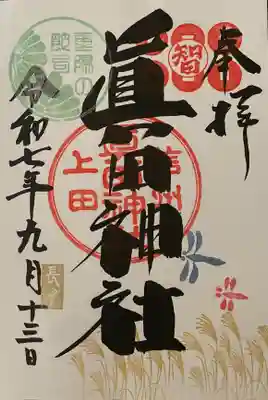 奉拝
智
眞田神社
信州
眞田神社
上田
重陽の
節言
令和七年九月十三日